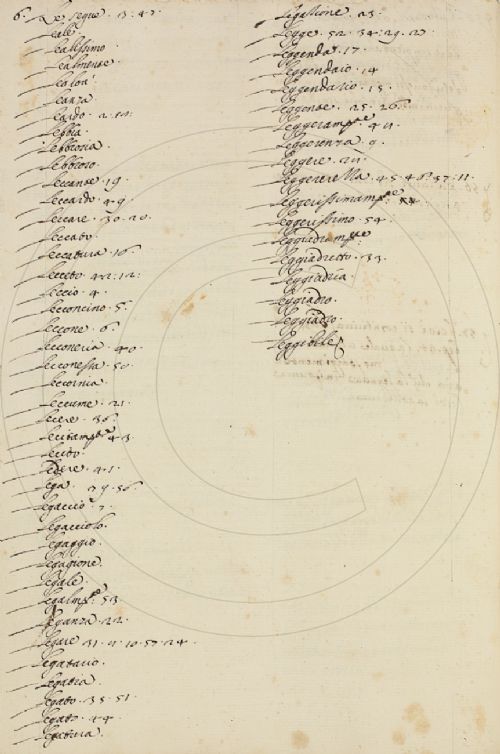 6. Le segue. 13. 47.
Leale.
Lealissimo.
Lealmense.
Lealta.
Leanza
Leardo. 2.
Lebbia.
Lebbroria
Lebbroso.
Leccanse. 19.
Leccardo. 49.
Leccare. 30. 20.
Leccato.
Leccatura. 16.
Lecceto. 42. 12.
Leccio. 4.
Lecconcino. 5.
Leccone. 6.
Lecconeria. 40.
Lecconessa. 50.
Leccornia.
Leccume. 21.
Lecere. 36.
Lecitamᵗᵉ 43.
Lecito.
Ledere. 41.
Lega. 56.
Legaccio. 7.
Legacciolo.
Legaggio.
Legagione.
Legale.
Legalmᵗᵉ. 53.
Leganza. 22.
Legare 31. 11. 10. 57. 24.
Legatario.
Legatia.
Legato. 35. 51.
Legato. 44.
Legatura.
Legazione. 23.
Legge. 52. 34. 29. 27.
Leggenda. 17.
Leggendaio. 14
Leggendario. 15.
Leggense. 25. 26.
Leggerᵗᵉ 41.
Leggerenza. 9.
Leggere. 21.
Leggerezza. 45. 46. 37. 11.
Leggerissimamᵗᵉ. 54.
Leggerissimo. 54.
Leggiadramᵗᵉ
Leggiadretto. 33.
Leggiadria.
Leggiadro.
Leggiadro.
Leggibile